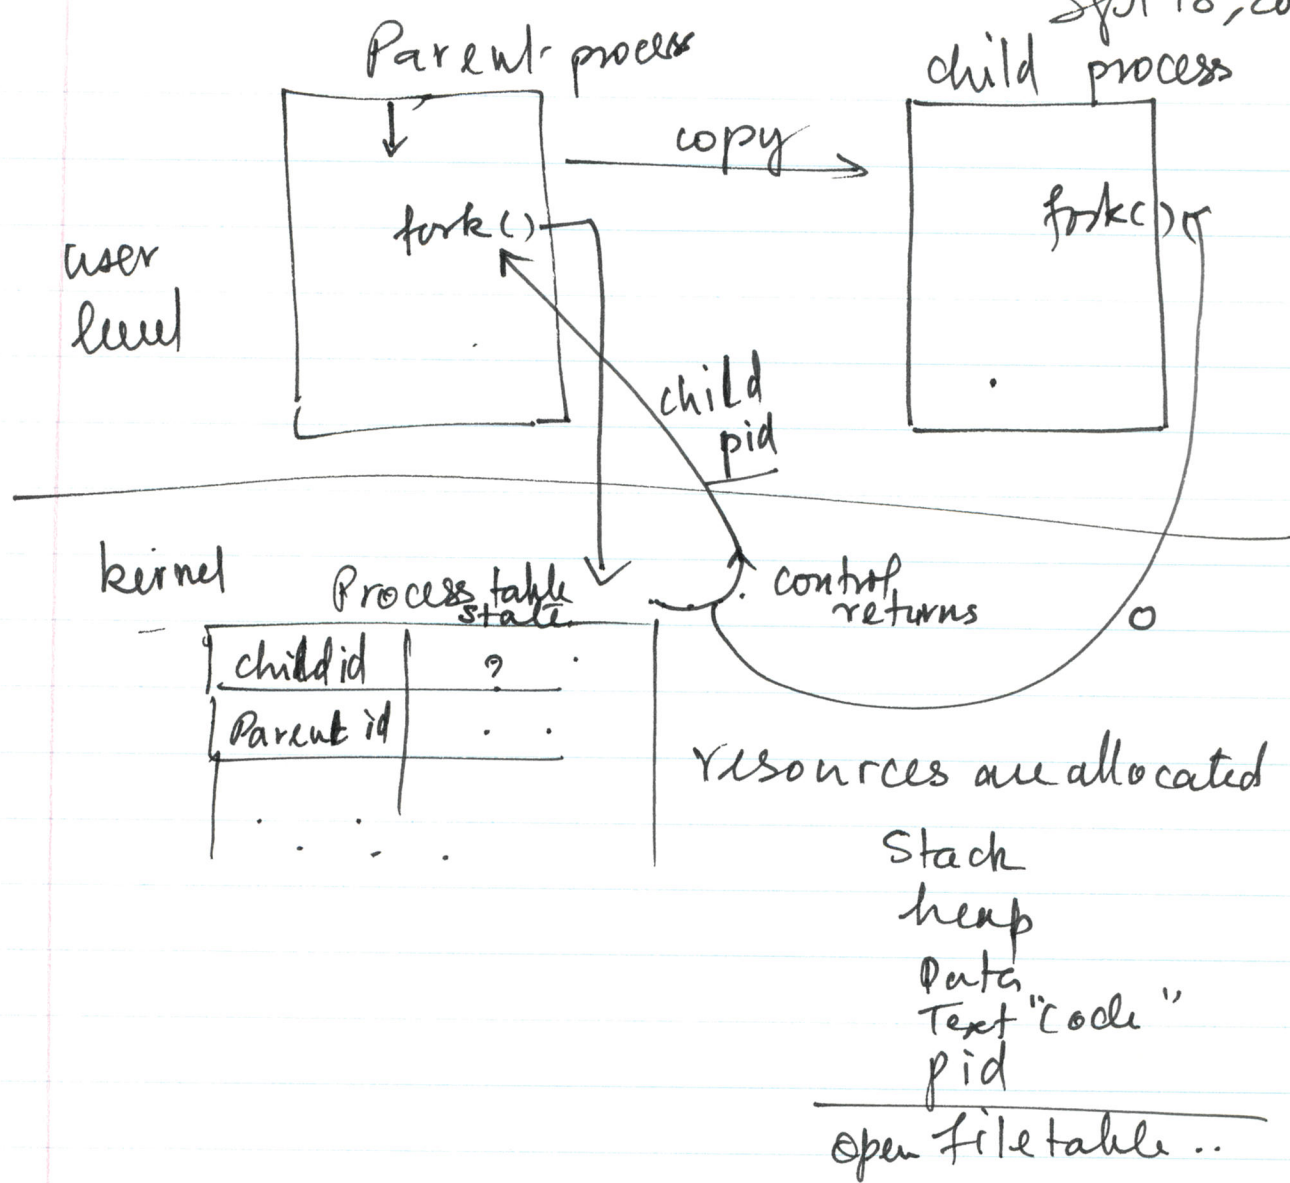 Parent process
child process
copy
fork()
fork()
user
level
child
pid
kernel
Process table
state
control
returns
0
child id ?
Parent id
resources are allocated
Stack
heap
Data
Text "Code"
pid
open file table ..